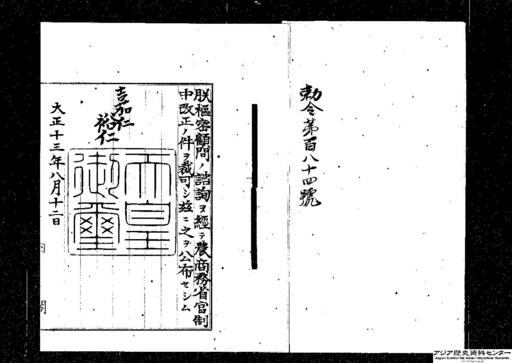 勅令第百八十四號
朕樞密顧問ノ諮詢ヲ經テ農商務省官制
中改正ノ件ヲ裁可シ茲ニ之ヲ公布セシム
嘉仁
裕仁
天皇御璽
大正十三年八月十二日
内閣
アジア歴史資料センター
Japan Center for Asian Historical Records